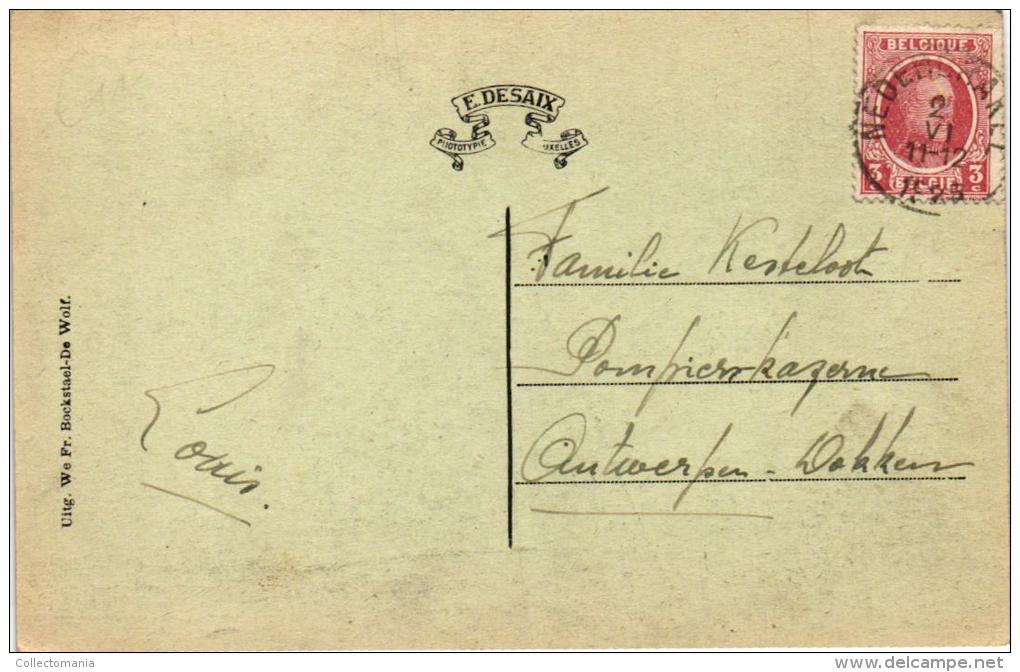 E. DESAIX
PHOTOTYPIE
UXELLES
BELGIQUE
NEDER
2
VI
11-12
3 BELGIE 3
C C
Familie Kesteloot
Pompierskazerne
Antwerpen - Dokken
Louis.
Uitg. We Fr. Bockstael-De Wolf.
Collectomania
www.delcampe.net